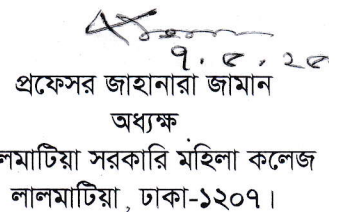 ৭.৫.২৫
প্রফেসর জাহানারা জামান
অধ্যক্ষ
লমাটিয়া সরকারি মহিলা কলেজ
লালমাটিয়া, ঢাকা-১২০৭।